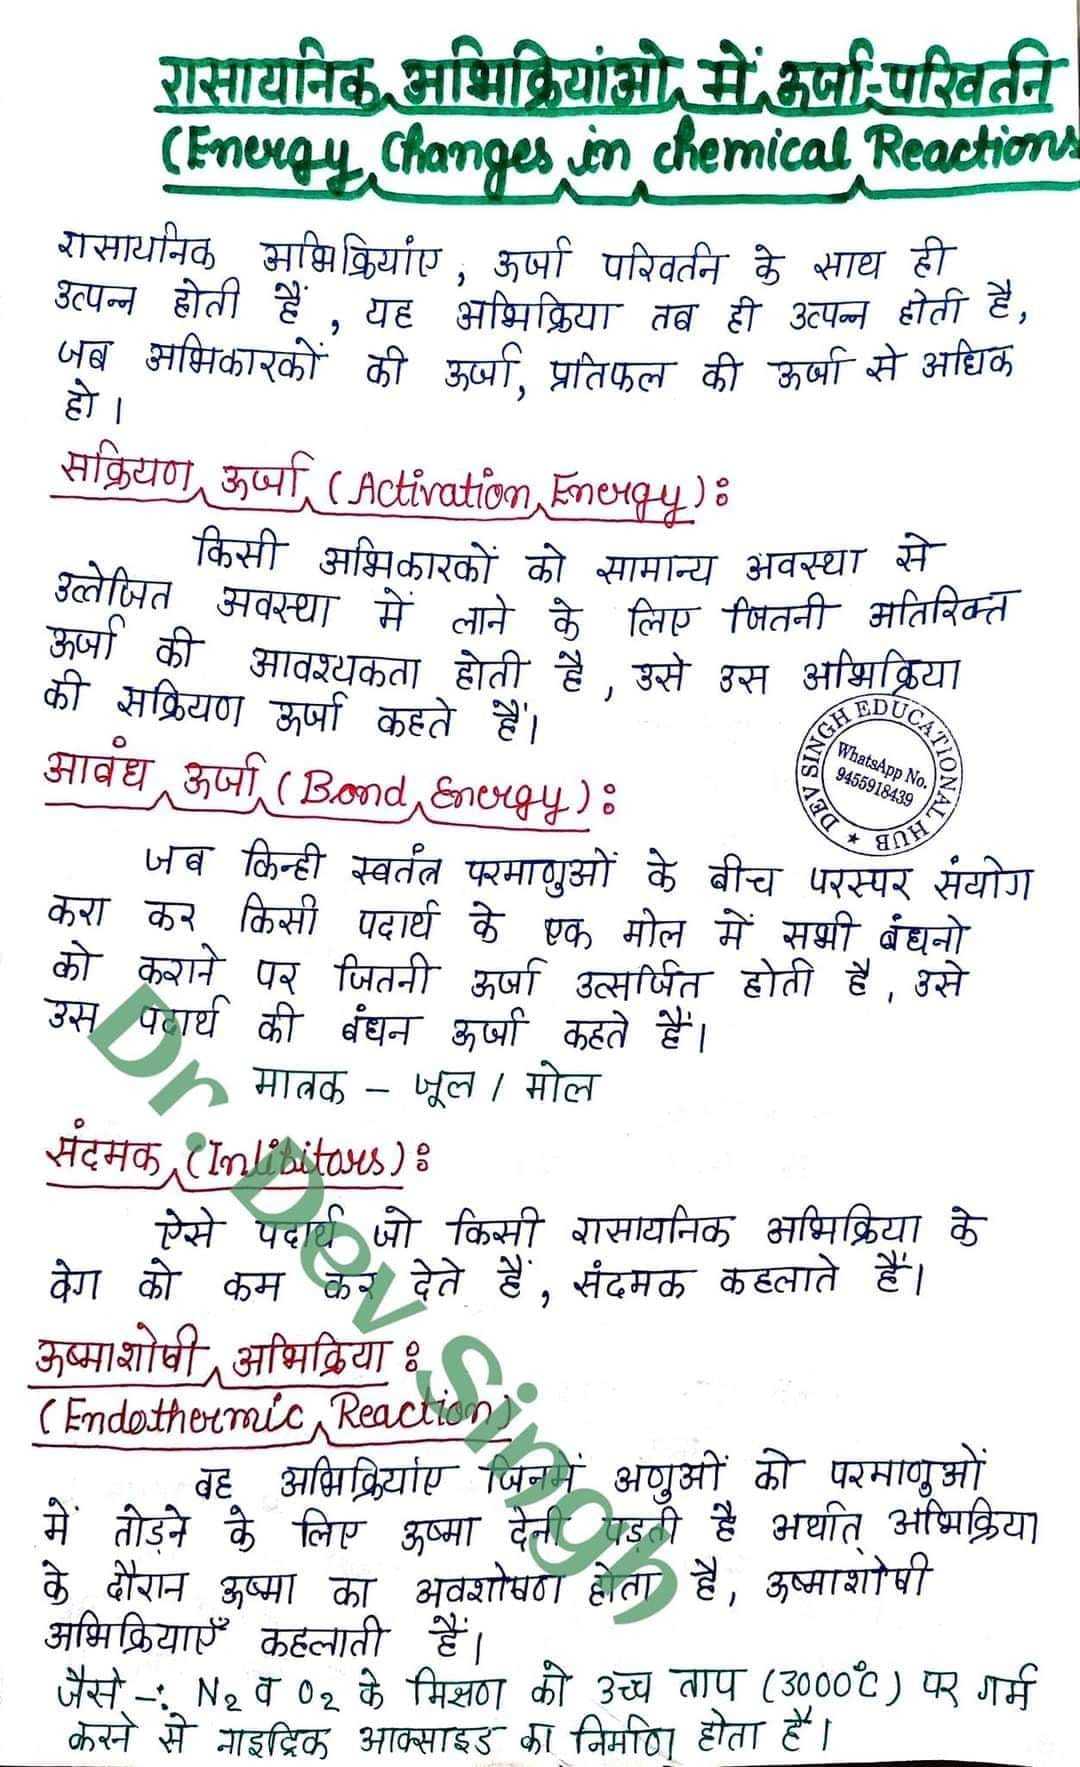 रासायनिक अभिक्रियांओ में ऊर्जा-परिवर्तन
(Energy Changes in chemical Reactions
रासायनिक अभिक्रियांए, ऊर्जा परिवर्तन के साथ ही
उत्पन्न होती हैं, यह अभिक्रिया तब ही उत्पन्न होती है,
जब अभिकारकों की ऊर्जा, प्रतिफल की ऊर्जा से अधिक
हो।
सक्रियण ऊर्जा (Activation Energy):
किसी अभिकारकों को सामान्य अवस्था से
उत्तेजित अवस्था में लाने के लिए जितनी अतिरिक्त
ऊर्जा की आवश्यकता होती है, उसे उस अभिक्रिया
की सक्रियण ऊर्जा कहते हैं।
DEV SINGH EDUCATIONAL HUB
WhatsApp No.
9455918439
आबंध ऊर्जा (Bond Energy):
जब किन्ही स्वतंत्र परमाणुओं के बीच परस्पर संयोग
करा कर किसी पदार्थ के एक मोल में सभी बंधनो
को कराने पर जितनी ऊर्जा उत्सर्जित होती है, उसे
उस पदार्थ की बंधन ऊर्जा कहते हैं।
मात्रक - जूल / मोल
संदमक (Inhibitors):
ऐसे पदार्थ जो किसी रासायनिक अभिक्रिया के
वेग को कम कर देते हैं, संदमक कहलाते हैं।
ऊष्माशोषी अभिक्रिया:
(Endothermic Reaction)
वह अभिक्रियांए जिनमें अणुओं को परमाणुओं
में तोड़ने के लिए ऊष्मा देनी पड़ती है अर्थात् अभिक्रिया
के दौरान ऊष्मा का अवशोषण होता है, ऊष्माशोषी
अभिक्रियाएँ कहलाती हैं।
जैसे -: N2 व O2 के मिश्रण को उच्च ताप (3000°C) पर गर्म
करने से नाइट्रिक आक्साइड का निर्माण होता है।
Dr. Dev Singh